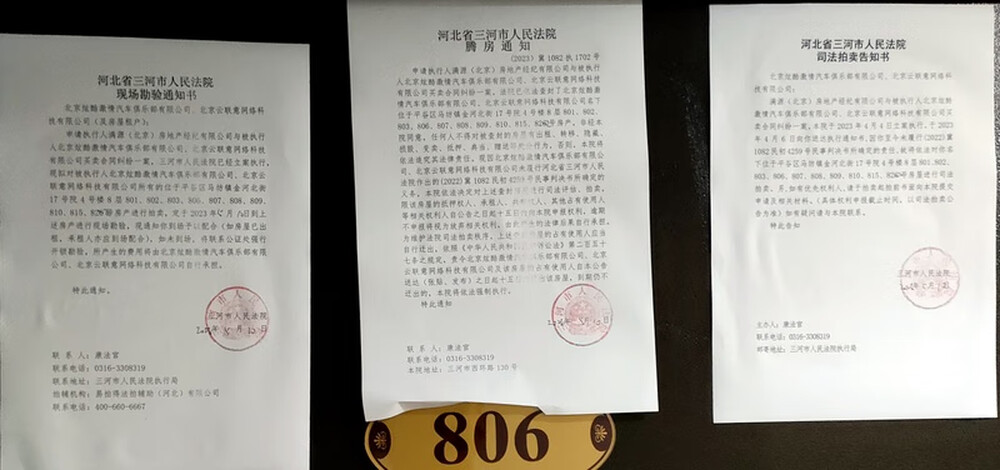 河北省三河市人民法院
现场勘验通知书
北京炫酷激情汽车俱乐部有限公司、北京云联意网络科
技有限公司(及房屋租户):
申请执行人满源(北京)房地产经纪有限公司与被执行
人北京炫酷激情汽车俱乐部有限公司、北京云联意网络科技
有限公司买卖合同纠纷一案,三河市人民法院已经立案执行,
现拟对被执行人北京炫酷激情汽车俱乐部有限公司、北京云
联意网络科技有限公司所有的位于平谷区马坊镇金河北街
17号院4号楼8层801、802、803、806、807、808、809、
810、815、826房产进行拍卖,定于2023年 月 日到上
述房产进行现场勘验,现通知你到场予以配合(如房屋已出
租,承租人亦应到场配合),如未到场,将联系公证处强行
开锁勘验,所产生的费用将由北京炫酷激情汽车俱乐部有限
公司、北京云联意网络科技有限公司自行承担。
特此通知。
三河市人民法院
联 系 人:康法官
联系电话:0316-3308319
联系地址:三河市人民法院执行局
拍辅机构:易拍得法拍辅助(河北)有限公司
联系电话:400-660-6667
河北省三河市人民法院
腾 房 通 知
(2023)冀1082执1702号
申请执行人满源(北京)房地产经纪有限公司与被执行
人北京炫酷激情汽车俱乐部有限公司、北京云联意网络科技
有限公司买卖合同纠纷一案,法院已依法查封了北京炫酷激
情汽车俱乐部有限公司、北京云联意网络科技有限公司名下
位于平谷区马坊镇金河北街17号院4号楼8层801、802、
803、806、807、808、809、810、815、826号房产。非经本
院同意,任何人不得对被查封的房屋有出租、转移、隐藏、
毁损、变卖、抵押、典当、赠送等处分行为。否则,本院将
依法追究其法律责任。现因北京炫酷激情汽车俱乐部有限公
司、北京云联意网络科技有限公司未履行河北省三河市人民
法院作出的(2022)冀1082民初4259号民事判决书所确定的
义务,本院依法决定对上述查封房屋进行司法评估、拍卖,
限该房屋的抵押权人、承租人、共有权人、其他占有使用人
等相关权利人自公告之日起十五日内向本院申报权利,逾期
不申报将视为放弃相关权利,由此产生的法律后果自行承担。
为维护法院司法拍卖秩序,上述查封房屋的占有使用人应当
自行迁出,依照《中华人民共和国民事诉讼法》第二百五十
七条之规定,责令北京炫酷激情汽车俱乐部有限公司、北京
云联意网络科技有限公司及该房屋的占有使用人自本公告
送达(张贴、发布)之日起十五日内迁出该房屋,到期仍不
迁出的,本院将依法强制执行。
特此通知
联 系 人:康法官
联系电话:0316-3308319
本院地址:三河市西环路130号
806
河北省三河市人民法院
司法拍卖告知书
北京炫酷激情汽车俱乐部有限公司、北京云联意网络科
技有限公司:
满源(北京)房地产经纪有限公司与被执行人北京炫酷
激情汽车俱乐部有限公司、北京云联意网络科技有限公司买
卖合同纠纷一案,本院于2023年4月4日立案执行,于2023
年4月6日向你送达执行通知书,因你至今未履行(2022)
冀1082民初4259号民事判决书所确定的义务,就将依法对你名
下位于平谷区马坊镇金河北街17号院4号楼8层801、802、
803、806、807、808、809、810、815、826号房屋进行司法
拍卖。另,如有优先权利人,请于拍卖起拍前书面向本院提交
申请及相关材料。(具体权利申报截止时间,以司法拍卖公
告为准)如有疑问请与本院联系。
特此告知
三河市人民法院
主办人:康法官
联系电话:0316-3308319
邮寄地址:三河市人民法院执行局